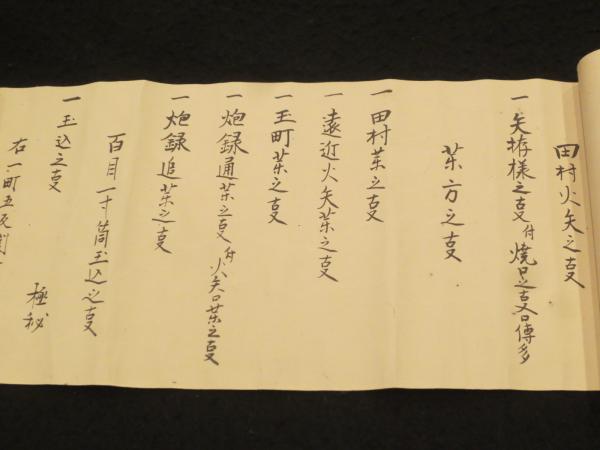 田村火矢之叓
一矢拵様之叓付焼口之叓口傳多
薬方之叓
一田村薬之叓
一遠近火矢薬之叓
一玉町薬之叓
一炮録通薬之叓付火矢口薬之叓
一炮録追薬之叓
百目一寸筒玉込之叓
一玉込之叓
極秘
右一町五反